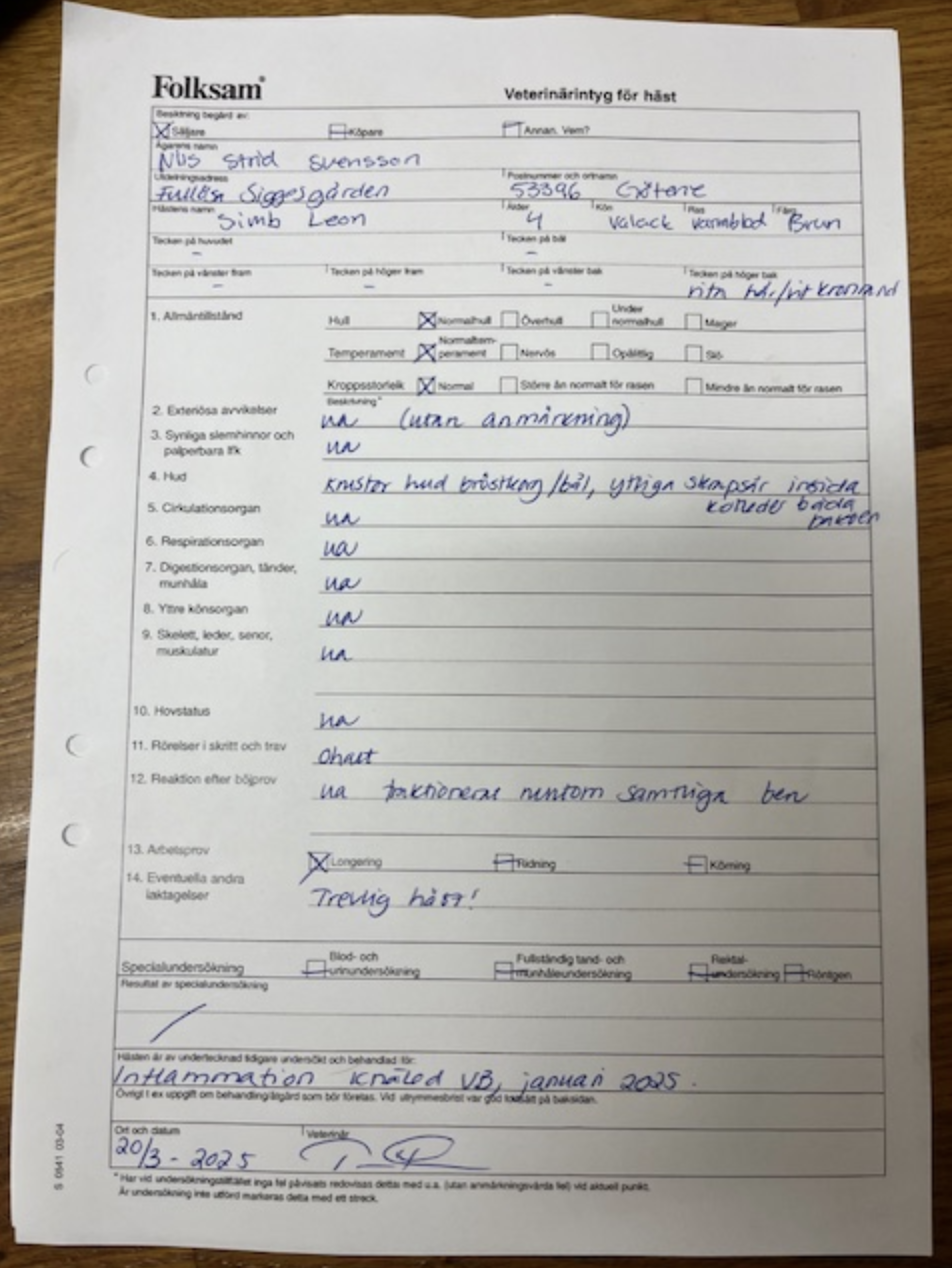 Folksam
Veterinärintyg för häst
Besiktning begärd av:
Säljare Köpare Annan. Vem?
Ägarens namn
Nils Strid Svensson
Utdelningsadress Postnummer och ortnamn
Fullösa Siggesgården 53396 Götene
Hästens namn Ålder Kön Ras Färg
Simb Leon 4 Valack varmblod Brun
Tecken på huvudet Tecken på bål
- -
Tecken på vänster fram Tecken på höger fram Tecken på vänster bak Tecken på höger bak
- - - vita hår/vit kronrand
1. Allmäntillstånd Hull Normalhull Överhull Under normalhull Mager
Temperament Normaltemperament Nervös Opålitlig Slö
Kroppsstorlek Normal Större än normalt för rasen Mindre än normalt för rasen
Beskrivning*
2. Exteriösa avvikelser ua (utan anmärkning)
3. Synliga slemhinnor och
palperbara lfk ua
4. Hud krustor hud bröstkorg/bål, ytliga skrapsår insida
kotleder båda
5. Cirkulationsorgan ua
6. Respirationsorgan ua
7. Digestionsorgan, tänder,
munhåla ua
8. Yttre könsorgan ua
9. Skelett, leder, senor,
muskulatur ua
10. Hovstatus ua
11. Rörelser i skritt och trav Ohalt
12. Reaktion efter böjprov ua fraktionerat runtom samtliga ben
13. Arbetsprov Longering Ridning Körning
14. Eventuella andra
iakttagelser Trevlig häst!
Specialundersökning Blod- och urinundersökning Fullständig tand- och munhåleundersökning Rektalundersökning Röntgen
Resultat av specialundersökning
Hästen är av undertecknad tidigare undersökt och behandlad för:
Inflammation knäled VB, januari 2025.
Övrigt t ex uppgift om behandling/åtgärd som bör företas. Vid utrymmesbrist var god fortsätt på baksidan.
Ort och datum Veterinär
20/3 - 2025
* Har vid undersökningstillfället inga fel påvisats redovisas dettas med u.a. (utan anmärkningsvärda fel) vid aktuell punkt.
Är undersökning inte utförd markeras detta med ett streck.
S 0841 03-04